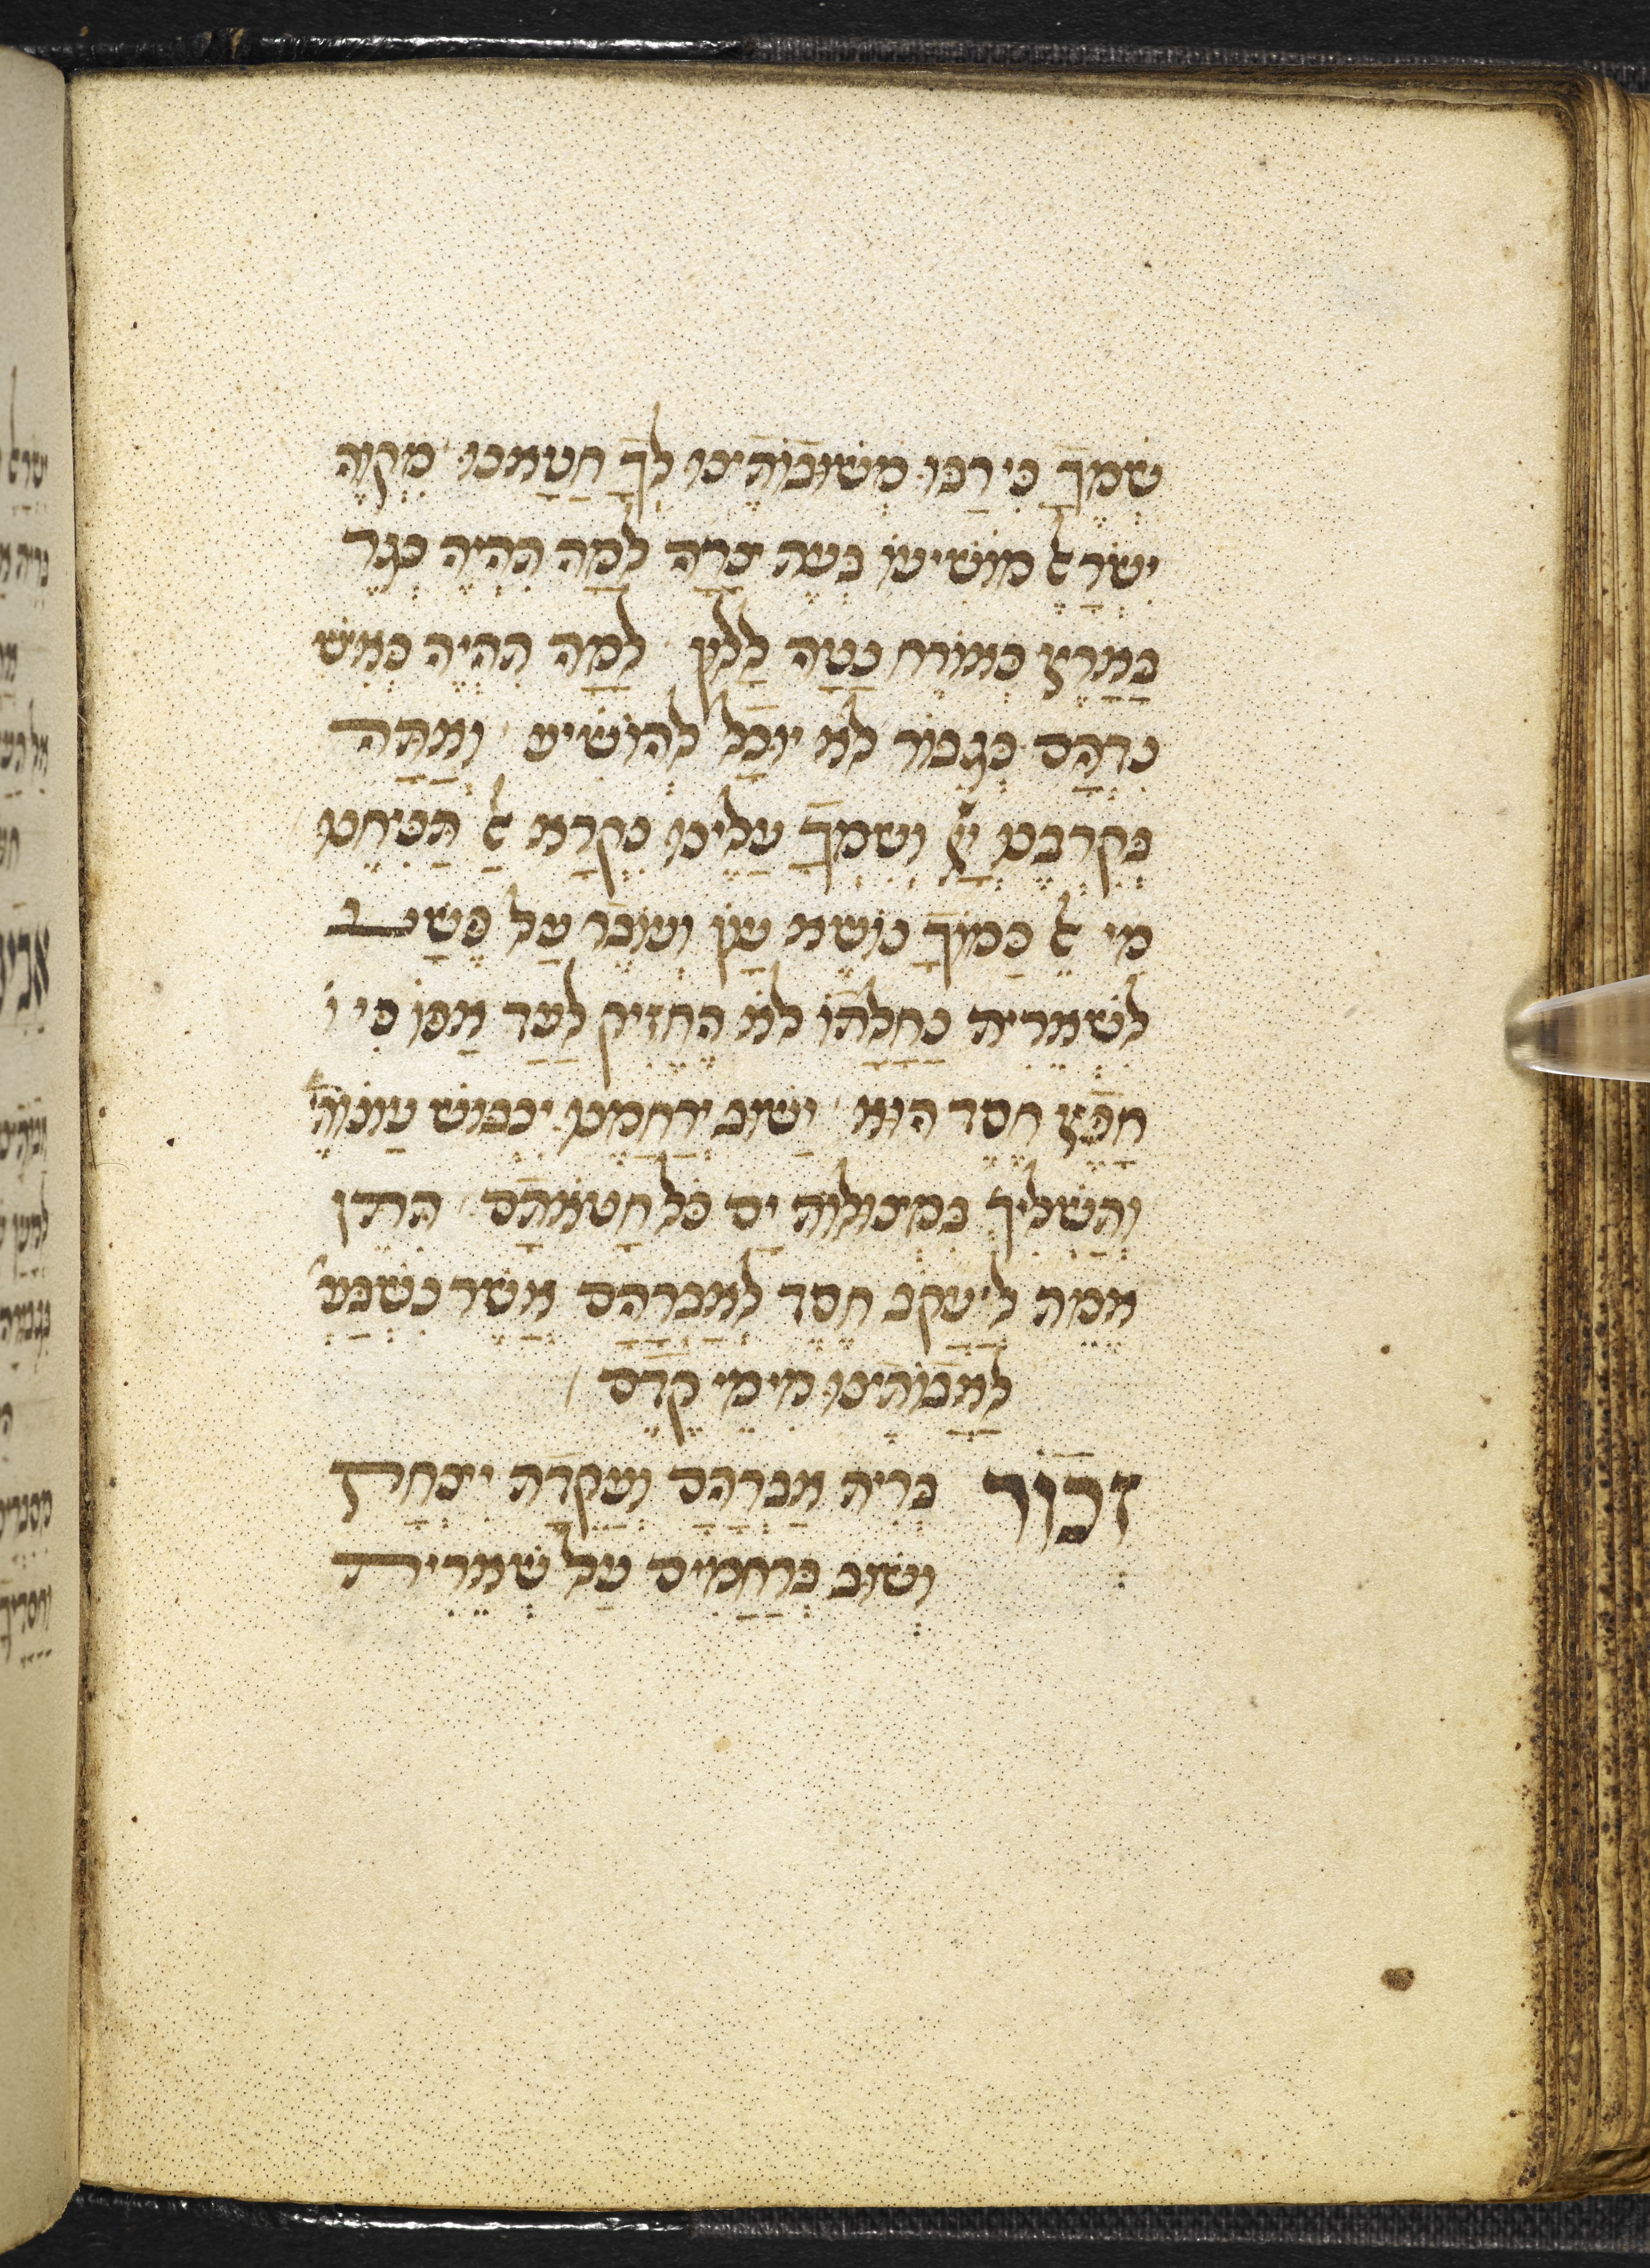 שְׁמֶךָ כִּי רַבּוּ מְשׁוּבוֹתֵינוּ לְךָ חָטָאנוּ׳ מִקְוֵה
יִשְׂרָﭏ מוֹשִׁיעוֹ בְּעֵת צָרָה לָמָּה תִהְיֶה כְּגֵר
בָּאָרֶץ כְּאוֹרֵחַ נָטָה לָלוּן׳ לָמָּה תִהְיֶה כְּאִישׁ
נִדְהָם כְּגִבּוֹר לֹא יוּכַל לְהוֹשִׁיעַ׳ וְאַתָּה
בְּקִרְבֵּנוּ יְיָ וְשִׁמְךָ עָלֵינוּ נִקְרָא ﭏ תַּנִּיחֵנוּ׳
מִי ﭏ כָּמוֹךָ נוֹשֵׂא עָוֹן וְעוֹבֵר עַל פֶּשַׁע
לִשְׁאֵרִית נַחֲלָתוֹ לֹא הֶחֱזִיק לָעַד אַפּוֹ כִּי
חָפֵץ חֶסֶד הוּא׳ יָשׁוּב יְרַחֲמֵנוּ יִכְבּוֹשׁ עֲוֹנוֹתֵ׳
וְתַשְׁלִיךְ בִּמְצוּלוֹת יָם כָּל חַטֹּאתָם׳ תִּתֵּן
אֱמֶת לְיַעֲקֹב חֶסֶד לְאַבְרָהָם אֲשֶׁר נִשְׁבַּעְ׳
לַאֲבוֹתֵינוּ מִימֵי קֶדֶם׳
זְכוֹר בְּרִית אַבְרָהָם וַעֲקֵדַת יִצְחָק
וְשׁוּב בְּרַחֲמִים עַל שְׁאֵרִית